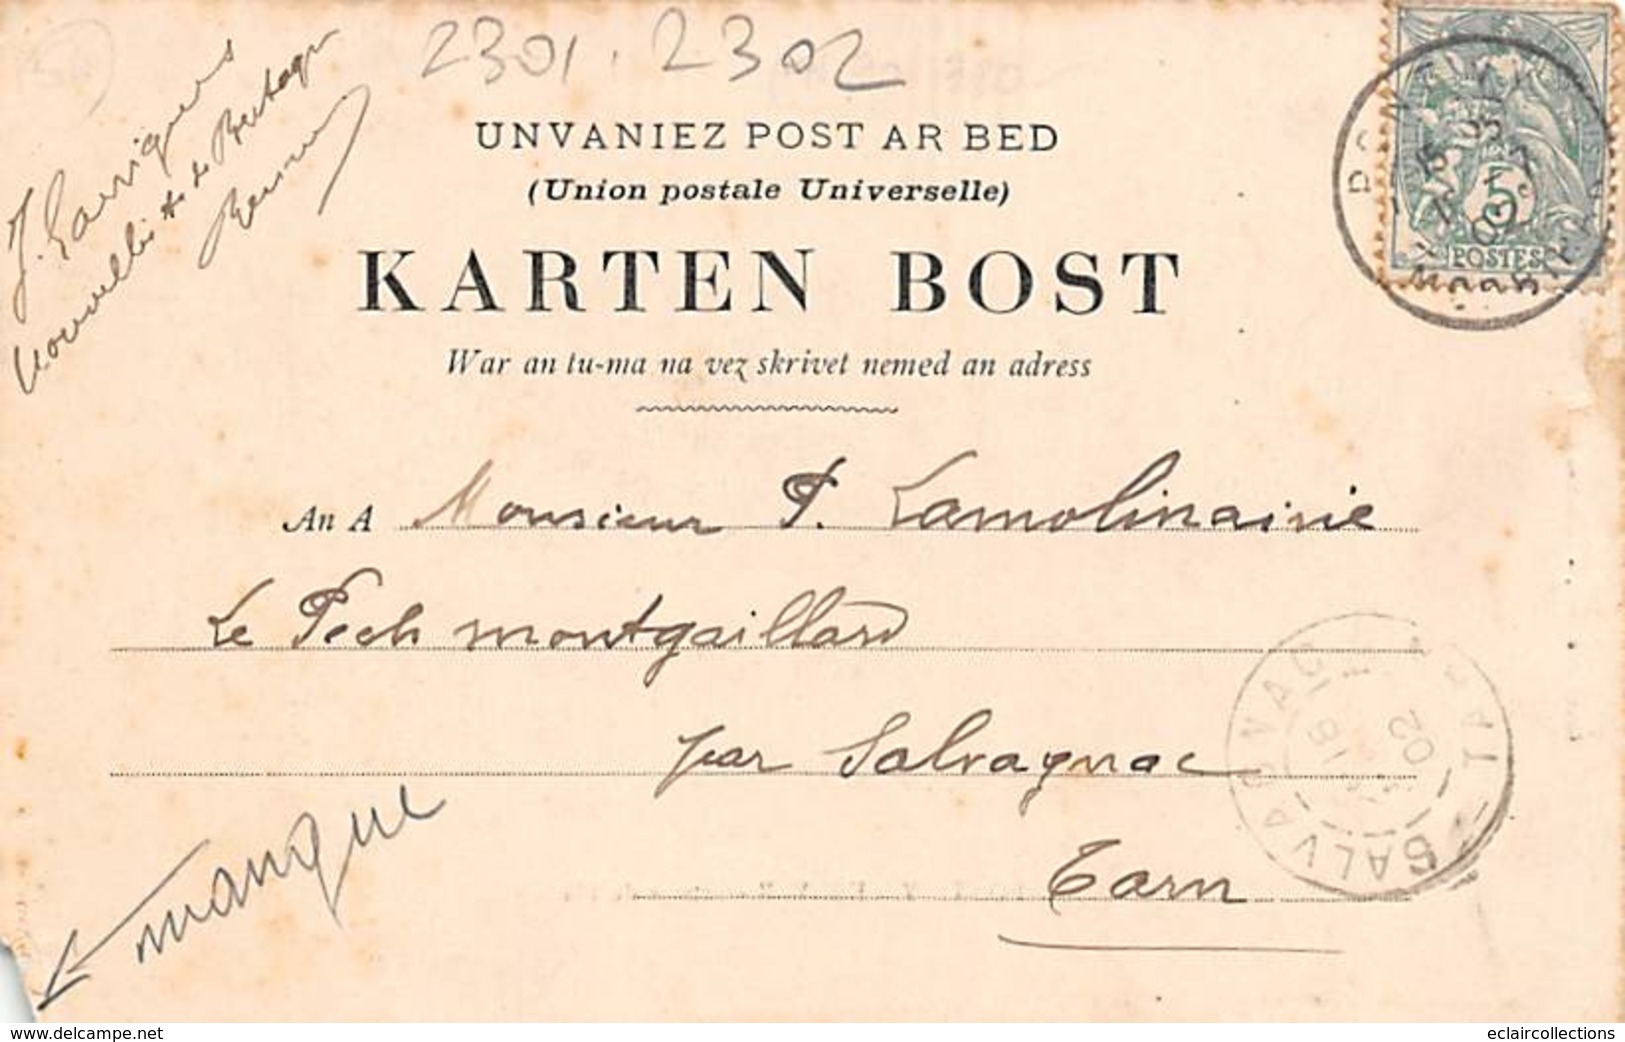 2301. 2302
J. Garrigues
de Bretagne
UNVANIEZ POST AR BED
(Union postale Universelle)
KARTEN BOST
War an tu-ma na vez skrivet nemed an adress
5c
POSTES
An A Monsieur P. Lamolinairie
Le Pech montgaillard
par Salvagnac
Tarn
SALVAGNAC TARN
16
02
manque
www.delcampe.net
eclaircollections